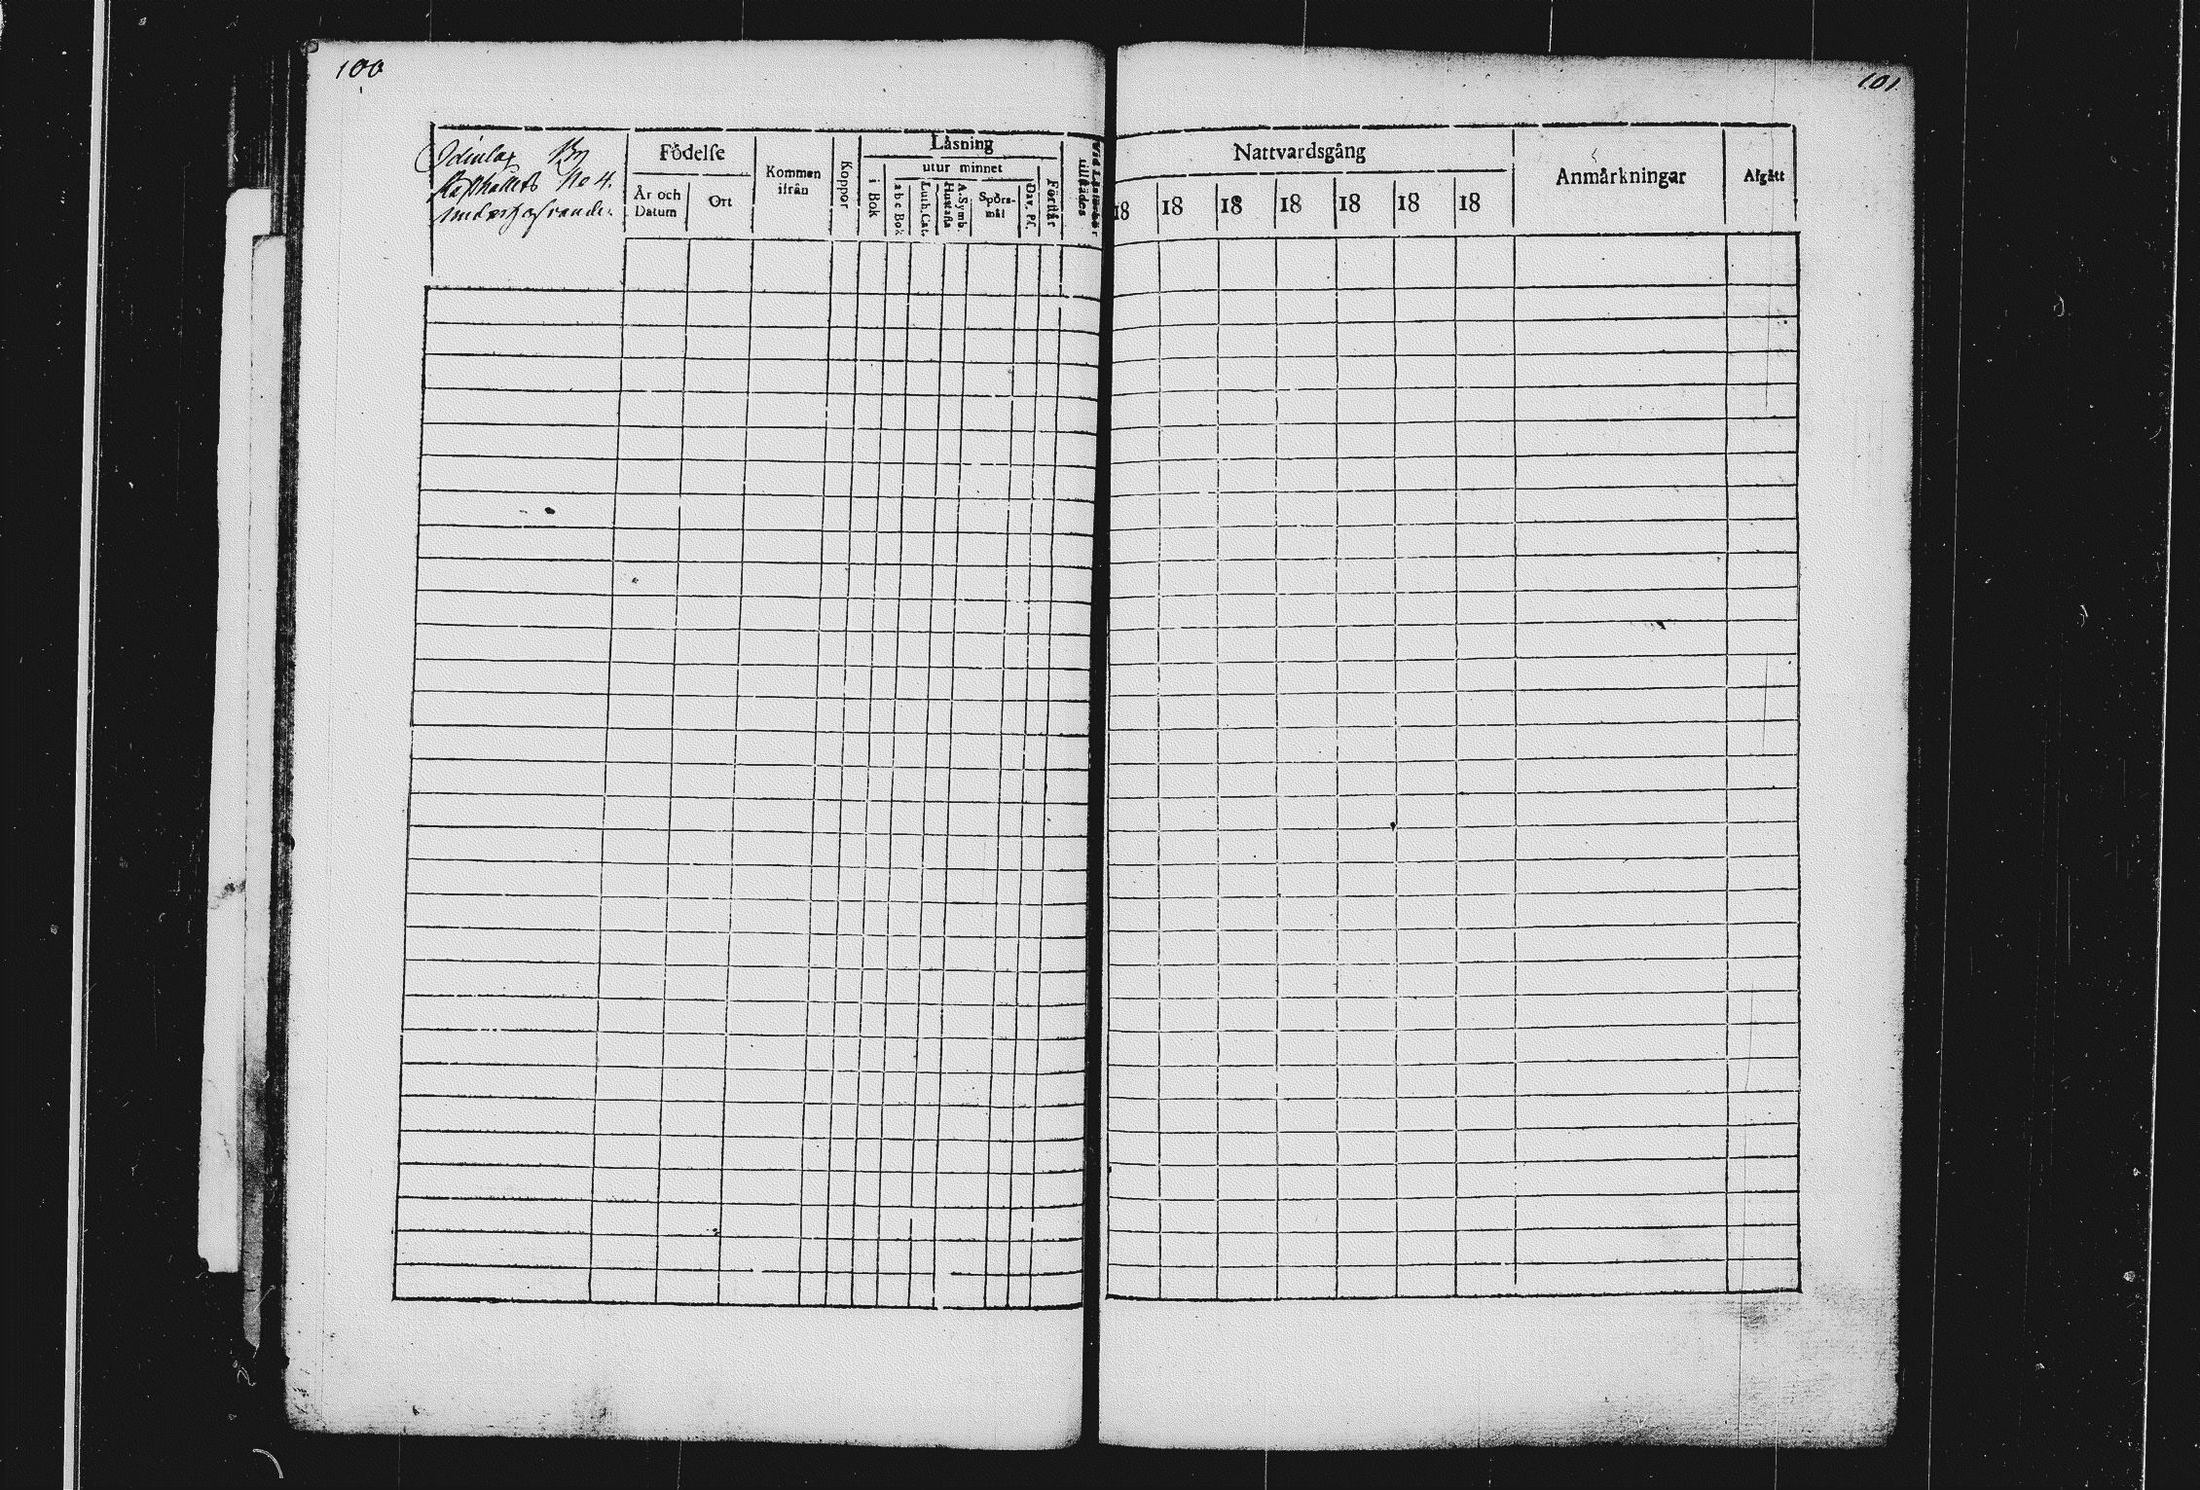 100
101
By
No 4.
Födelse
År och
Datum
Ort
Kommen
ifrån
Koppor
Läsning
i Bok
utur minnet
a b c Bok
Luth. Cat.
Hustafla
A. Symb.
Spörs-
mål
Dav. Ps.
Förstår
tillstädes
Nattvardsgång
18 18 18 18 18 18 18
Anmärkningar
Afgått